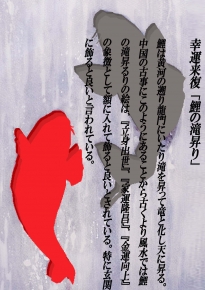 幸運来復「鯉の滝昇り」
鯉は黄河の遡り龍門にいたり滝を昇って竜と化し天に昇る。
中国の古事にこのようにあることから古くより風水では鯉
の滝昇りの絵は、『立身出世』、『家運隆昌』、『金運向上』
の象徴として額に入れて飾ると良いとされている。特に玄関
に飾ると良いと言われている。